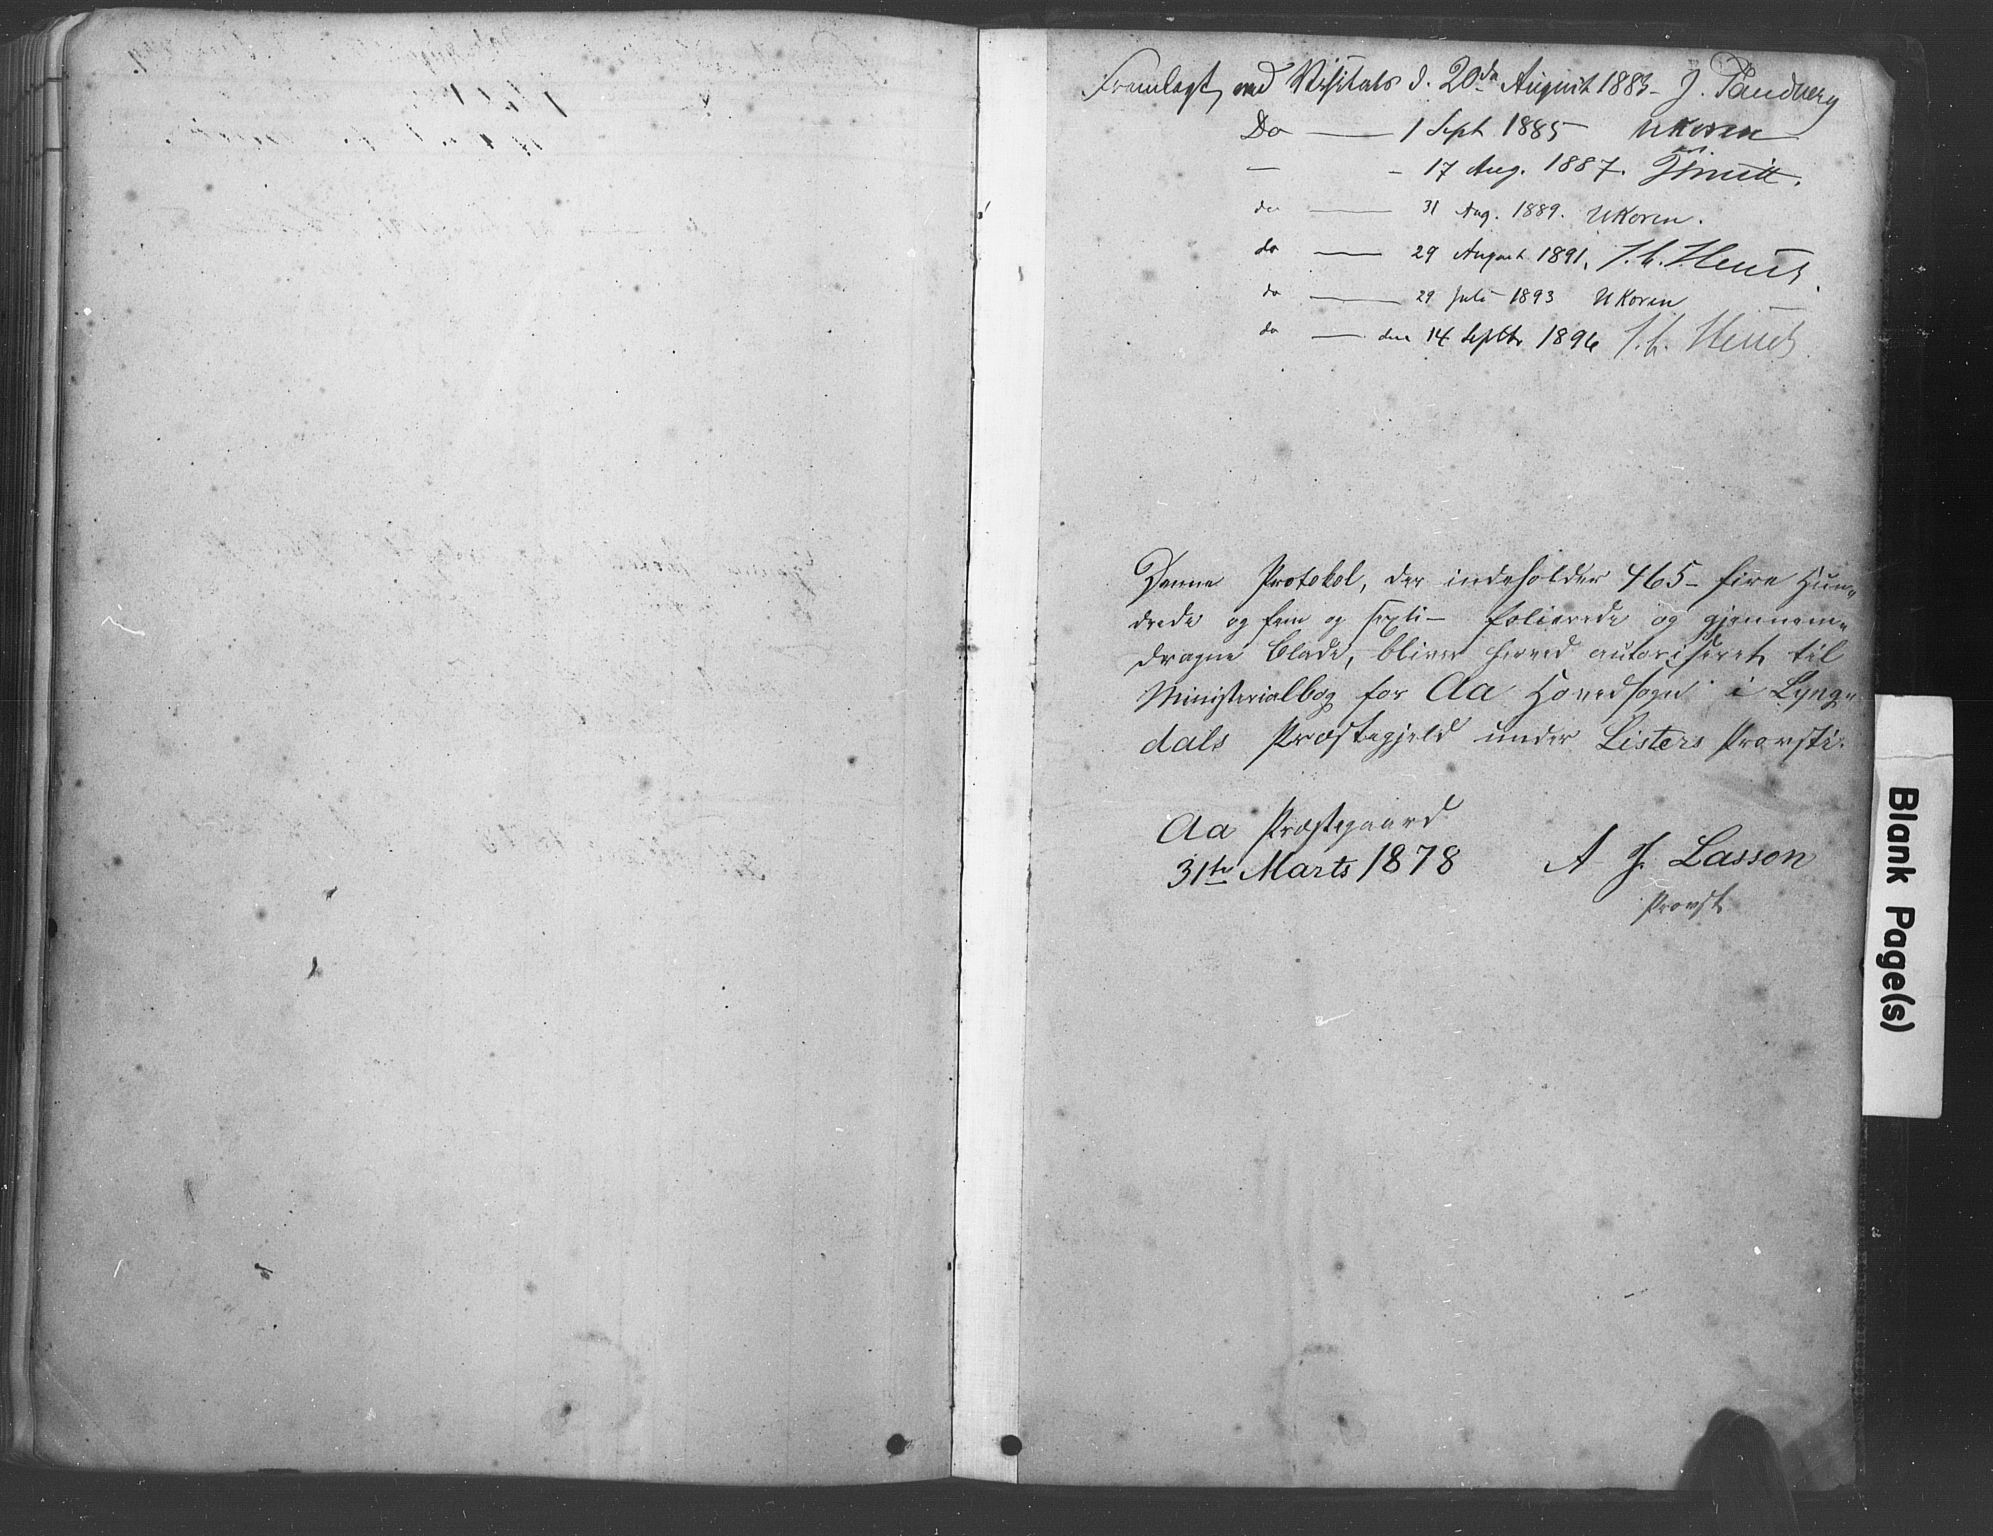 Fremlagt ved Visitats d. 20de August 1883 - J. Sandberg
Do — 1 Sept 1885 UKoren
— - 17 Aug. 1887.
do — 31 Aug. 1889. UKoren.
do — 29 August 1891. J. C. Heuch.
do — 29 Juli 1893 UKoren
do — den 14 Septbr 1896 J. C. Heuch
Denne Protokol, der indeholder 465 - fire Hun-
drede og fem og sexti - folierede og gjennem-
dragne Blade, bliver herved autoriseret til
Ministerialbog for Aa Hovedsogn i Lyng-
dals Præstegjeld under Listers Provsti.
Aa Præstegaard
31te Marts 1878 A F. Lasson
Provst
Blank Page(s)